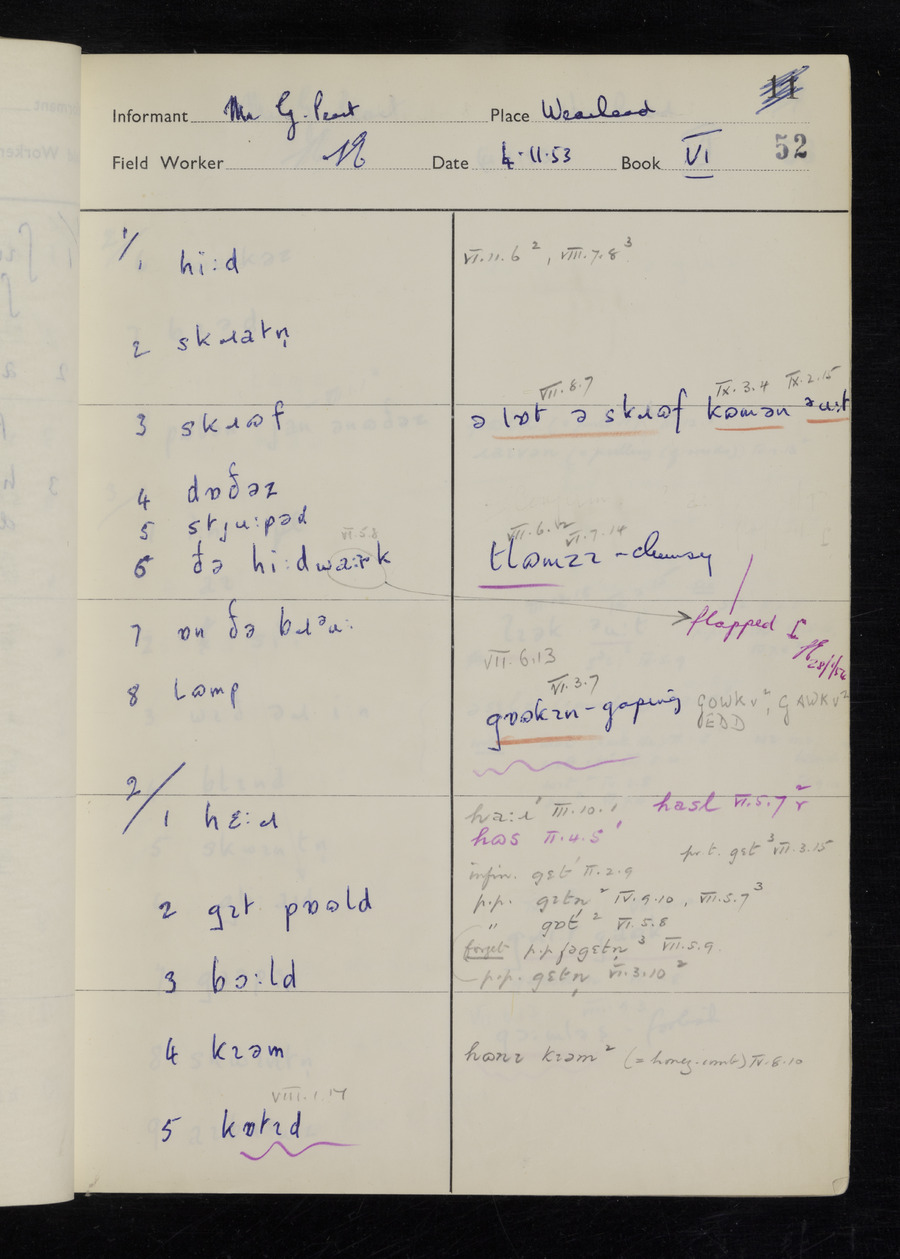 11
Informant Mr G. Peart Place Wearhead
Field Worker Date 4·11·53 Book VI 52
1/1 hï:d VI.11.6², VIII.7.8³
2 skɹatn̩
VII.8.7 IX.3.4 IX.2.15
3 skɹɒf ə lɒt ə skɹɒf kəmən əu:t
4 dɒðəz
5 stju:pəd VI.5.8 VII.6.12 VI.7.14
6 ðə hi:dwaːɾk tlɒmzɪ - clumsy
flapped r
28/1/54
7 ɒn ðə bɹəu:
VII.6.13
VI.3.7
8 lamp gɒkɪn - gaping GOWK v², GAWK v²
EDD
2/1 hɛ:ɹ III.10.1 hasl VI.5.7²
has II.4.5¹
p.t. get³ VII.3.15
infin. gɛt¹ II.2.9
2 gɪt p.p. gɪtn̩² IV.9.10, VII.5.7³
" gɒt² VI.5.8
forget p.p. fəgɛtn̩³ VII.5.9
3 bɔ:ld p.p. gɛtn̩ VI.3.10²
4 kɪəm kɪəm² (= honey-comb) IV.8.10
VIII.1.17
5 kɒtɪd